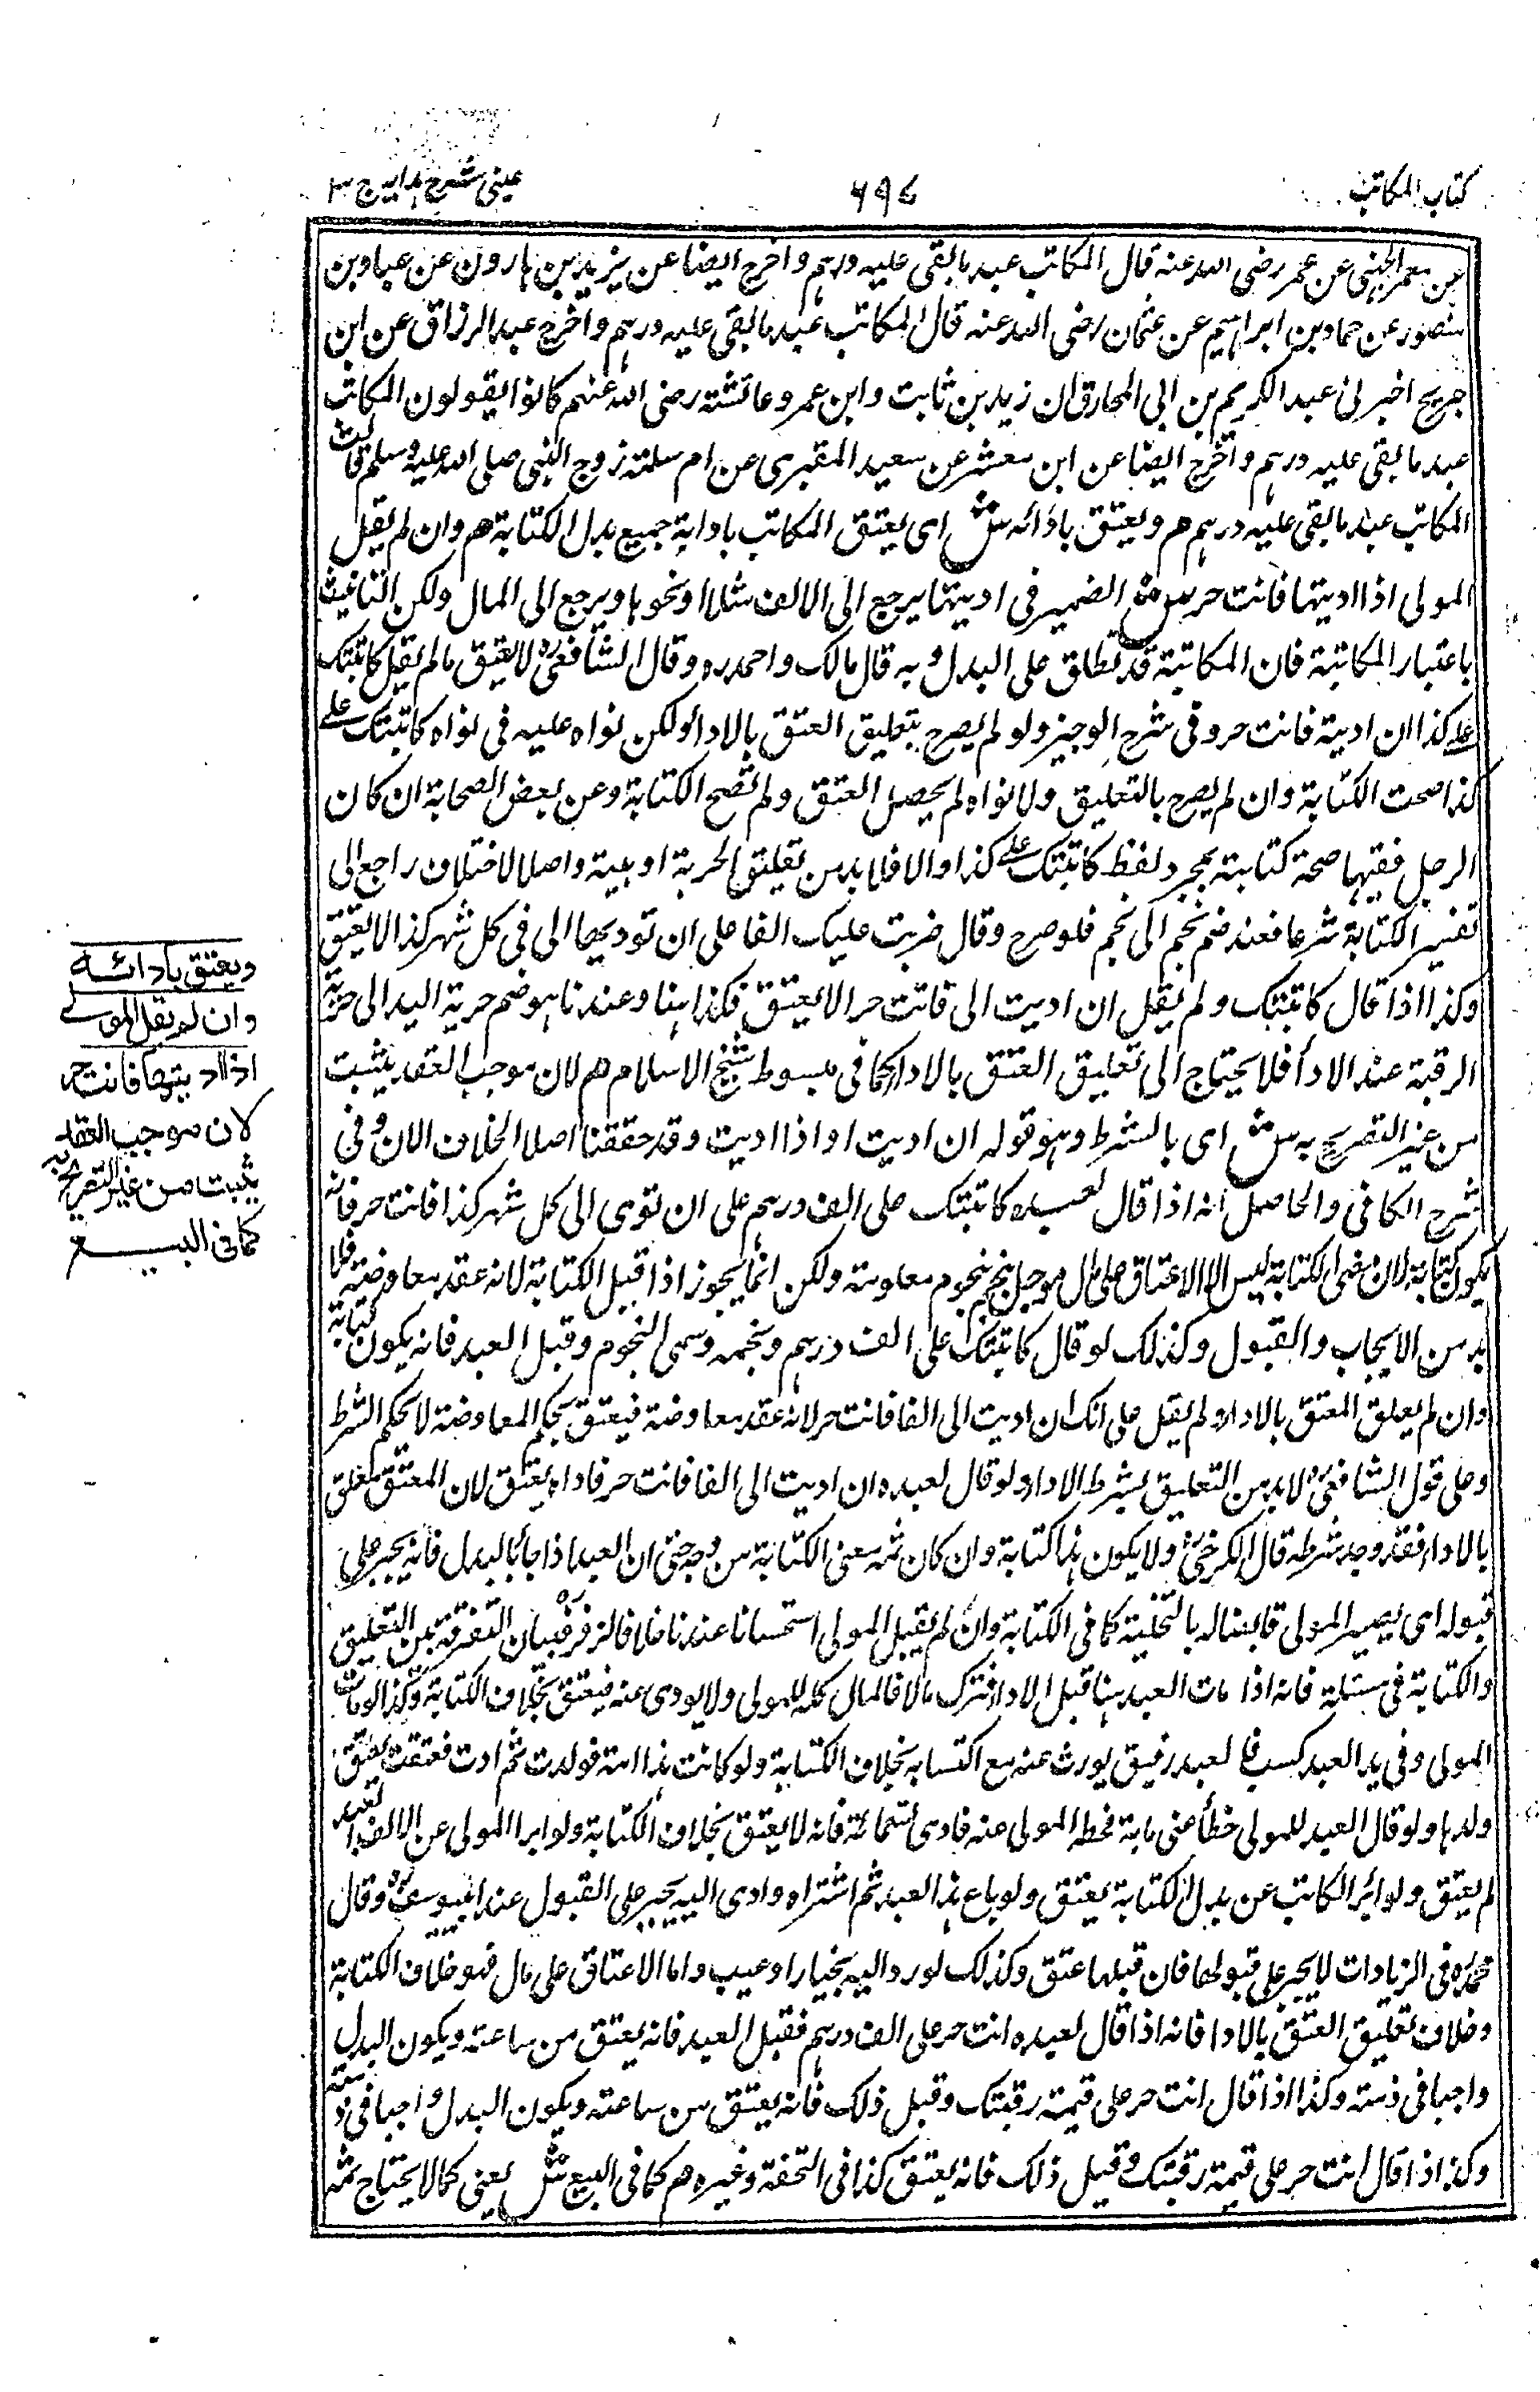 كتاب المكاتب
٦٩٧
عينى شرح هدايه ج ٣
عن معمر الجهنى عن عمر رضى الله عنه قال المكاتب عبد ما بقى عليه درهم واخرج ايضا عن يزيد بن هارون عن عباد بن
منصور عن حماد بن ابراهيم عن عثمان رضى الله عنه قال المكاتب عبد ما بقى عليه درهم واخرج عبد الرزاق عن ابن
جريج اخبرنى عبد الكريم بن ابى المخارق ان زيد بن ثابت وابن عمر وعائشة رضى الله عنهم كانوا يقولون المكاتب
عبد ما بقى عليه درهم واخرج ايضا عن ابن معشر عن سعيد المقبرى عن ام سلمة زوج النبى صلى الله عليه وسلم قالت
المكاتب عبد ما بقى عليه درهم هم ويعتق بادائه ش اى يعتق المكاتب باداية جميع بدل الكتابة هم وان لم يقل
المولى اذا اديتها فانت حر ش الضمير فى اديتها يرجع الى الالف مثلا او نحوها ويرجع الى المال ولكن التانيث
باعتبار المكاتبة فان المكاتبة قد تطلق على البدل وبه قال مالك واحمد ره وقال الشافعى ره لا يعتق ما لم يقل كاتبتك
على كذا ان اديته فانت حر وفى شرح الوجيز ولو لم يصرح بتعليق العتق بالاداء ولكن نواه عليه فى نواه كاتبتك على
كذا صحت الكتابة وان لم يصرح بالتعليق ولا نواه لم يحصل العتق ولم تصح الكتابة وعن بعض الصحابة ان كان
الرجل فقيها صحة كتابته بمجرد لفظ كاتبتك على كذا والا فلا بد من تعليق الحرية او بنية واصل الاختلاف راجع الى
تفسير الكتابة شرعا فعنده ضم نجم الى نجم فلو صرح وقال ضربت عليك الفا على ان توديها الى فى كل شهر كذا لا يعتق
وكذا اذا قال كاتبتك ولم يقل ان اديت الى فانت حر لا يعتق فكذا هنا وعندنا هو ضم حرية اليد الى حرية
الرقبة عند الاداء فلا يحتاج الى تعليق العتق بالاداء كما فى مبسوط شيخ الاسلام هم لان موجب العقد يثبت
من غير التصريح به ش اى بالشرط وهو قوله ان اديت او اذا اديت وقد حققنا اصل الخلاف الان وفى
شرح الكافى والحاصل انه اذا قال لعبده كاتبتك على الف درهم على ان تؤدى الى كل شهر كذا فانت حر فانه
يكون كتابة لان معنى الكتابة ليس الا الاعتاق على مال موجل بنجم نجوم معلومته ولكن انما يجوز اذا قبل الكتابة لانه عقد معاوضته فلا
بد من الايجاب والقبول وكذلك لو قال كاتبتك على الف درهم ونجمه وسمى النجوم وقبل العبد فانه يكون كتابة
وان لم يعلق العتق بالاداء ولم يقل على انك ان اديت الى الفا فانت حر لانه عقد معاوضة فيعتق بحكم المعاوضة لا بحكم الشرط
وعلى قول الشافعى ره لا بد من التعليق بشرط الاداء ولو قال لعبده ان اديت الى الفا فانت حر فاداه يعتق لان العتق معلق
بالاداء فقد وجد شرطه قال الكرخى ره ولا يكون هذا كتابة وان كان ثمه معنى الكتابة من وجه حتى ان العبد اذا جاء بالبدل فانه يجبر على
قبوله اى يصير المولى قابضا له بالتخلية كما فى الكتابة وان لم يقبل المولى استحسانا عندنا خلافا لزفر ره فبيان التفرقة بين التعليق
والكتابة فى مسئلة فانه اذا مات العبد ههنا قبل الاداء فترك مالا فالمال كله للمولى ولا يودى عنه فيعتق بخلاف الكتابة وكذا لو مات
المولى وفى يد العبد كسب فالعبد رقيق يورث عنه مع اكتسابه بخلاف الكتابة ولو كانت هذا امة فولدت ثم ادت فعتقت لم يعتق
ولدها ولو قال العبد للمولى خطأ عنى مائة فحطه المولى عنه فادى تسعمائة فانه لا يعتق بخلاف الكتابة ولو ابرا المولى عن الالف العبد
لم يعتق ولو ابرأ المكاتب عن بدل الكتابة يعتق ولو باع هذا العبد ثم اشتراه وادى اليه يجبر على القبول عند ابيوسف ره وقال
محمد ره فى الزيادات لا يجبر على قبولها فان قبلها عتق وكذلك لو رد اليه بخيار او عيب واما الاعتاق على مال فهو خلاف الكتابة
وخلاف تعليق العتق بالاداء فانه اذا قال لعبده انت حر على الف درهم فقبل العبد فانه يعتق من ساعته ويكون البدل
واجبا فى ذمته وكذا اذا قال انت حر على قيمته رقبتك وقبل ذلك فانه يعتق من ساعته ويكون البدل واجبا فى ذمته
وكذا اذا قال انت حر على قيمة رقبتك وقبل ذلك فانه يعتق كذا فى التحفة وغيره هم كما فى البيع ش يعنى كما لا يحتاج ثمه
ويعتق بادائه
وان لم يقل المولى
اذا اديتها فانت حر
لان موجب العقد
يثبت من غير التصريح به
كما فى البيع